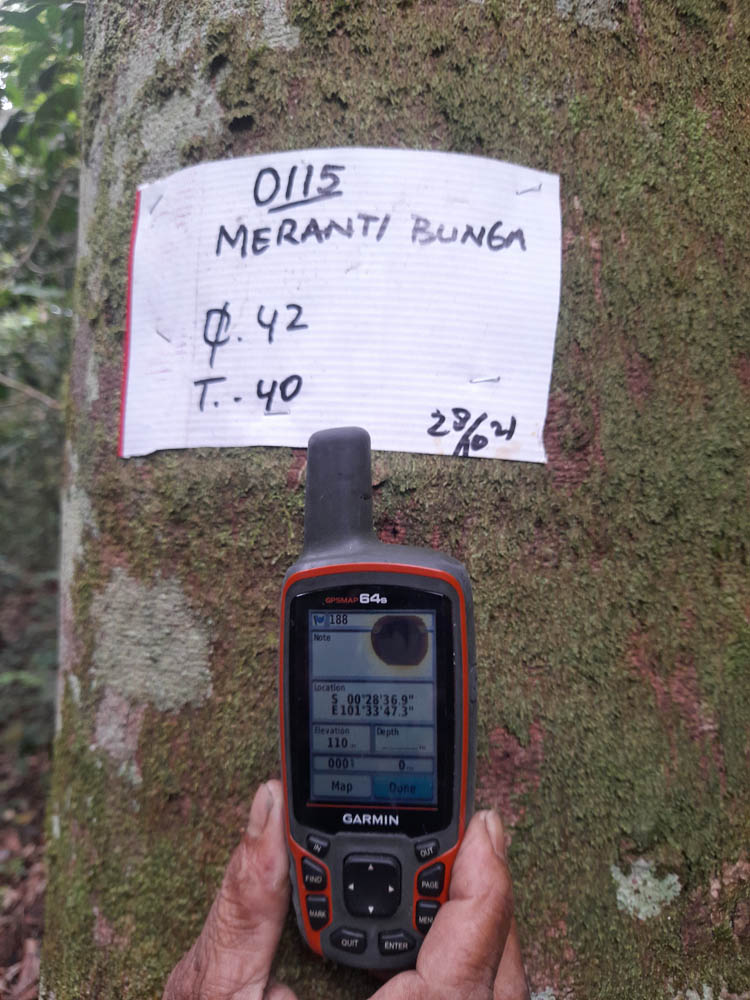 0115
MERANTI BUNGA
₵. 42
T. - 40
28/10 21
GPSMAP 64s
188
Note
Location
S 00°28'36.9"
E101°33'47.3"
Elevation Depth
110 m
0
Map Done
GARMIN
IN OUT
FIND PAGE
MARK MENU
QUIT ENTER